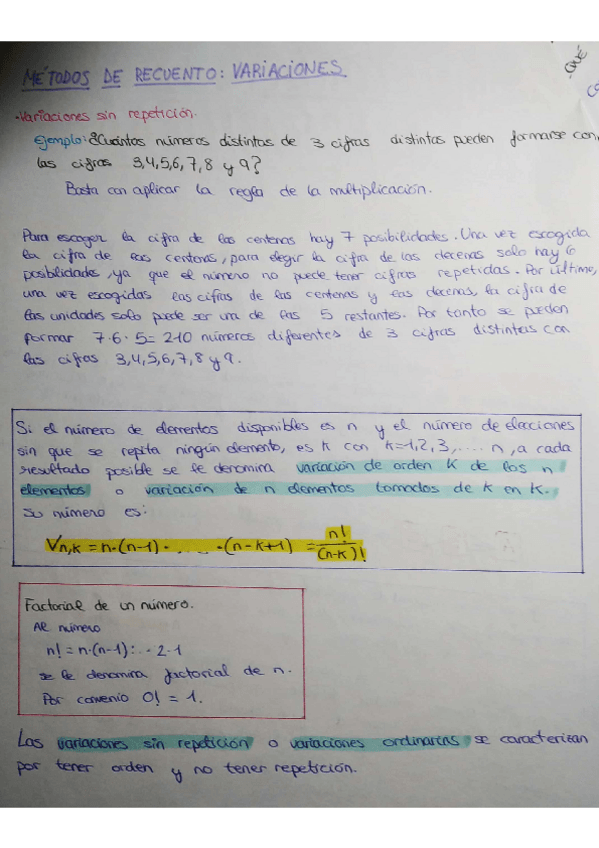 QUÉ
MÉTODOS DE RECUENTO: VARIACIONES
·Variaciones sin repetición.
Ejemplo: ¿Cuántos números distintos de 3 cifras distintas pueden formarse con
las cifras 3,4,5,6,7,8 y 9?
Basta con aplicar la regla de la multiplicación.
Para escoger la cifra de las centenas hay 7 posibilidades. Una vez escogida
la cifra de las centenas, para elegir la cifra de las decenas solo hay 6
posibilidades, ya que el número no puede tener cifras repetidas. Por último,
una vez escogidas las cifras de las centenas y las decenas, la cifra de
las unidades solo puede ser una de las 5 restantes. Por tanto se pueden
formar 7·6·5=210 números diferentes de 3 cifras distintas con
las cifras 3,4,5,6,7,8 y 9.
Si el número de elementos disponibles es n y el número de elecciones
sin que se repita ningún elemento, es k con k=1,2,3,....n, a cada
resultado posible se le denomina variación de orden K de los n
elementos o variación de n elementos tomados de k en k.
Su número es:
Vn,k = n·(n-1)·.....·(n-k+1) = n!/(n-k)!
Factorial de un número.
Al número
n! = n·(n-1):..2·1
se le denomina factorial de n.
Por convenio 0! = 1.
Las variaciones sin repetición o variaciones ordinarias se caracterizan
por tener orden y no tener repetición.